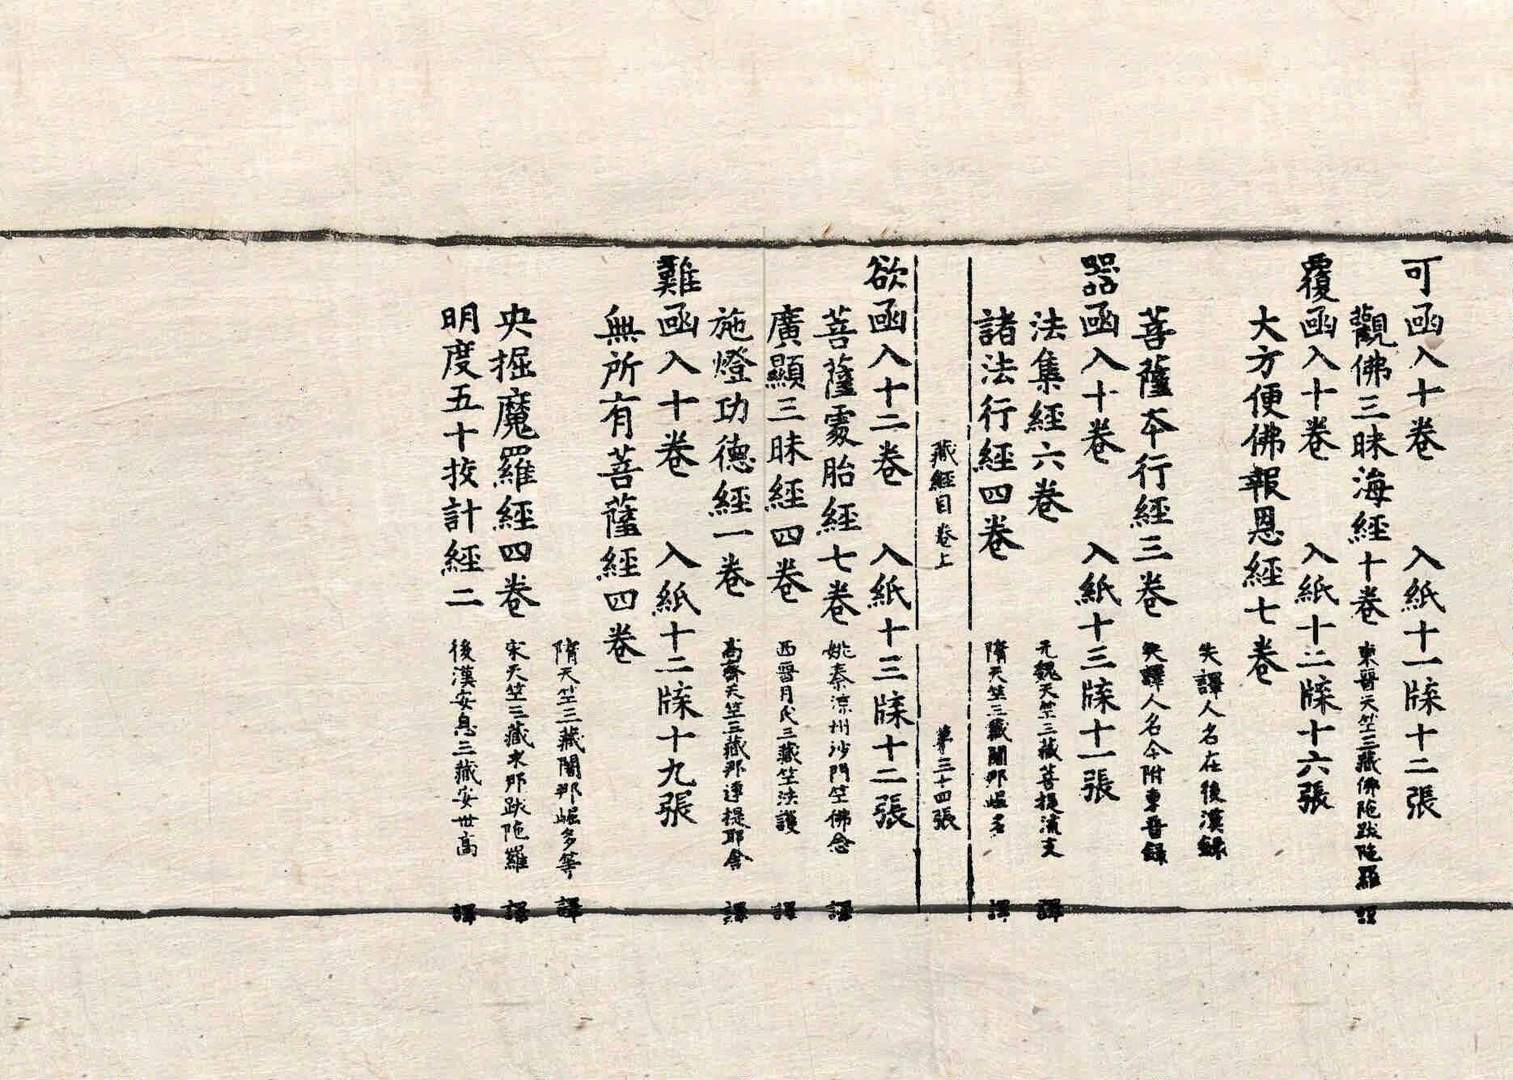 可函入十卷 入紙十一牒十二張
觀佛三昧海經十卷 東晉天竺三藏佛陁跋陁羅 譯
覆函入十卷 入紙十二牒十六張
大方便佛報恩經七卷
失譯人名在後漢錄
菩薩夲行經三卷 失譯人名今附東晉錄
器函入十卷 入紙十三牒十一張
法集經六卷 元魏天竺三藏菩提流支 譯
諸法行經四卷 隋天竺三藏闍那崛多 譯
藏經目卷上 第三十四張
欲函入十二卷 入紙十三牒十二張
菩薩處胎經七卷 姚秦涼州沙門竺佛念 譯
廣顯三昧經四卷 西晉月氏三藏竺法護 譯
施燈功德經一卷 高齊天竺三藏那連提耶舍 譯
難函入十卷 入紙十二牒十九張
無所有菩薩經四卷
隋天竺三藏闍那崛多等 譯
央掘魔羅經四卷 宋天竺三藏求那跋陁羅 譯
明度五十挍計經二 後漢安息三藏安世高 譯